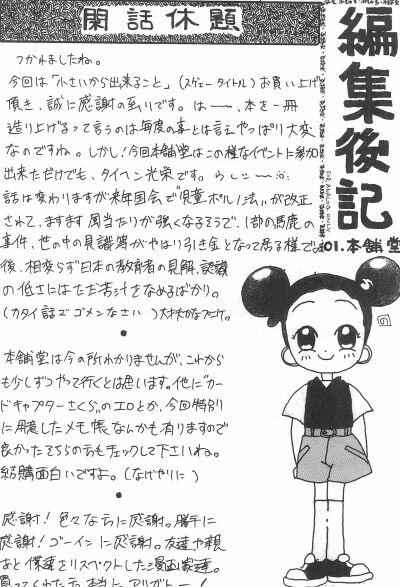 閑話休題
編集後記
01.本舗堂
つかれましたね。
今回は「小さいから出来ること」(スゲェータイトル)お買い上げ
頂き、誠に感謝の至りです。は━━、本を一冊
造り上げるって言うのは毎度の事とは言えやっぱり大変
なのですね。しかし!今回本舗堂はこの様なイベントに参加
出来ただけでも、タイヘン光栄です。うれしー
話は変わりますが来年国会で"児童ポルノ法"が改正
されて、ますます風当たりが強くなるそうで、1部の馬鹿の
事件、世の中の良識等がやはり引き金となって居る様で。
後、相変らず日本の教育者の見解、認識
の低さにはただ苦汁をなめるばかり。
(カタイ話でゴメンなさい)大丈夫かな
●
本舗堂は今の所わかりませんが、これから
も少しずつやって行くとは思います。他に"カー
ドキャプターさくら"のエロとか、今回特別
に用意したメモ帳なんかも有りますので
良かったらそちらの方もチェックして下さいね。
結構面白いですよ。(なげやりに)
●
感謝!色々な方に感謝。勝手に
感謝!ゴーインに感謝。友達や親
など僕達をリスペクトした漫画家達。
買ってくれた方、本当にアリガトー!